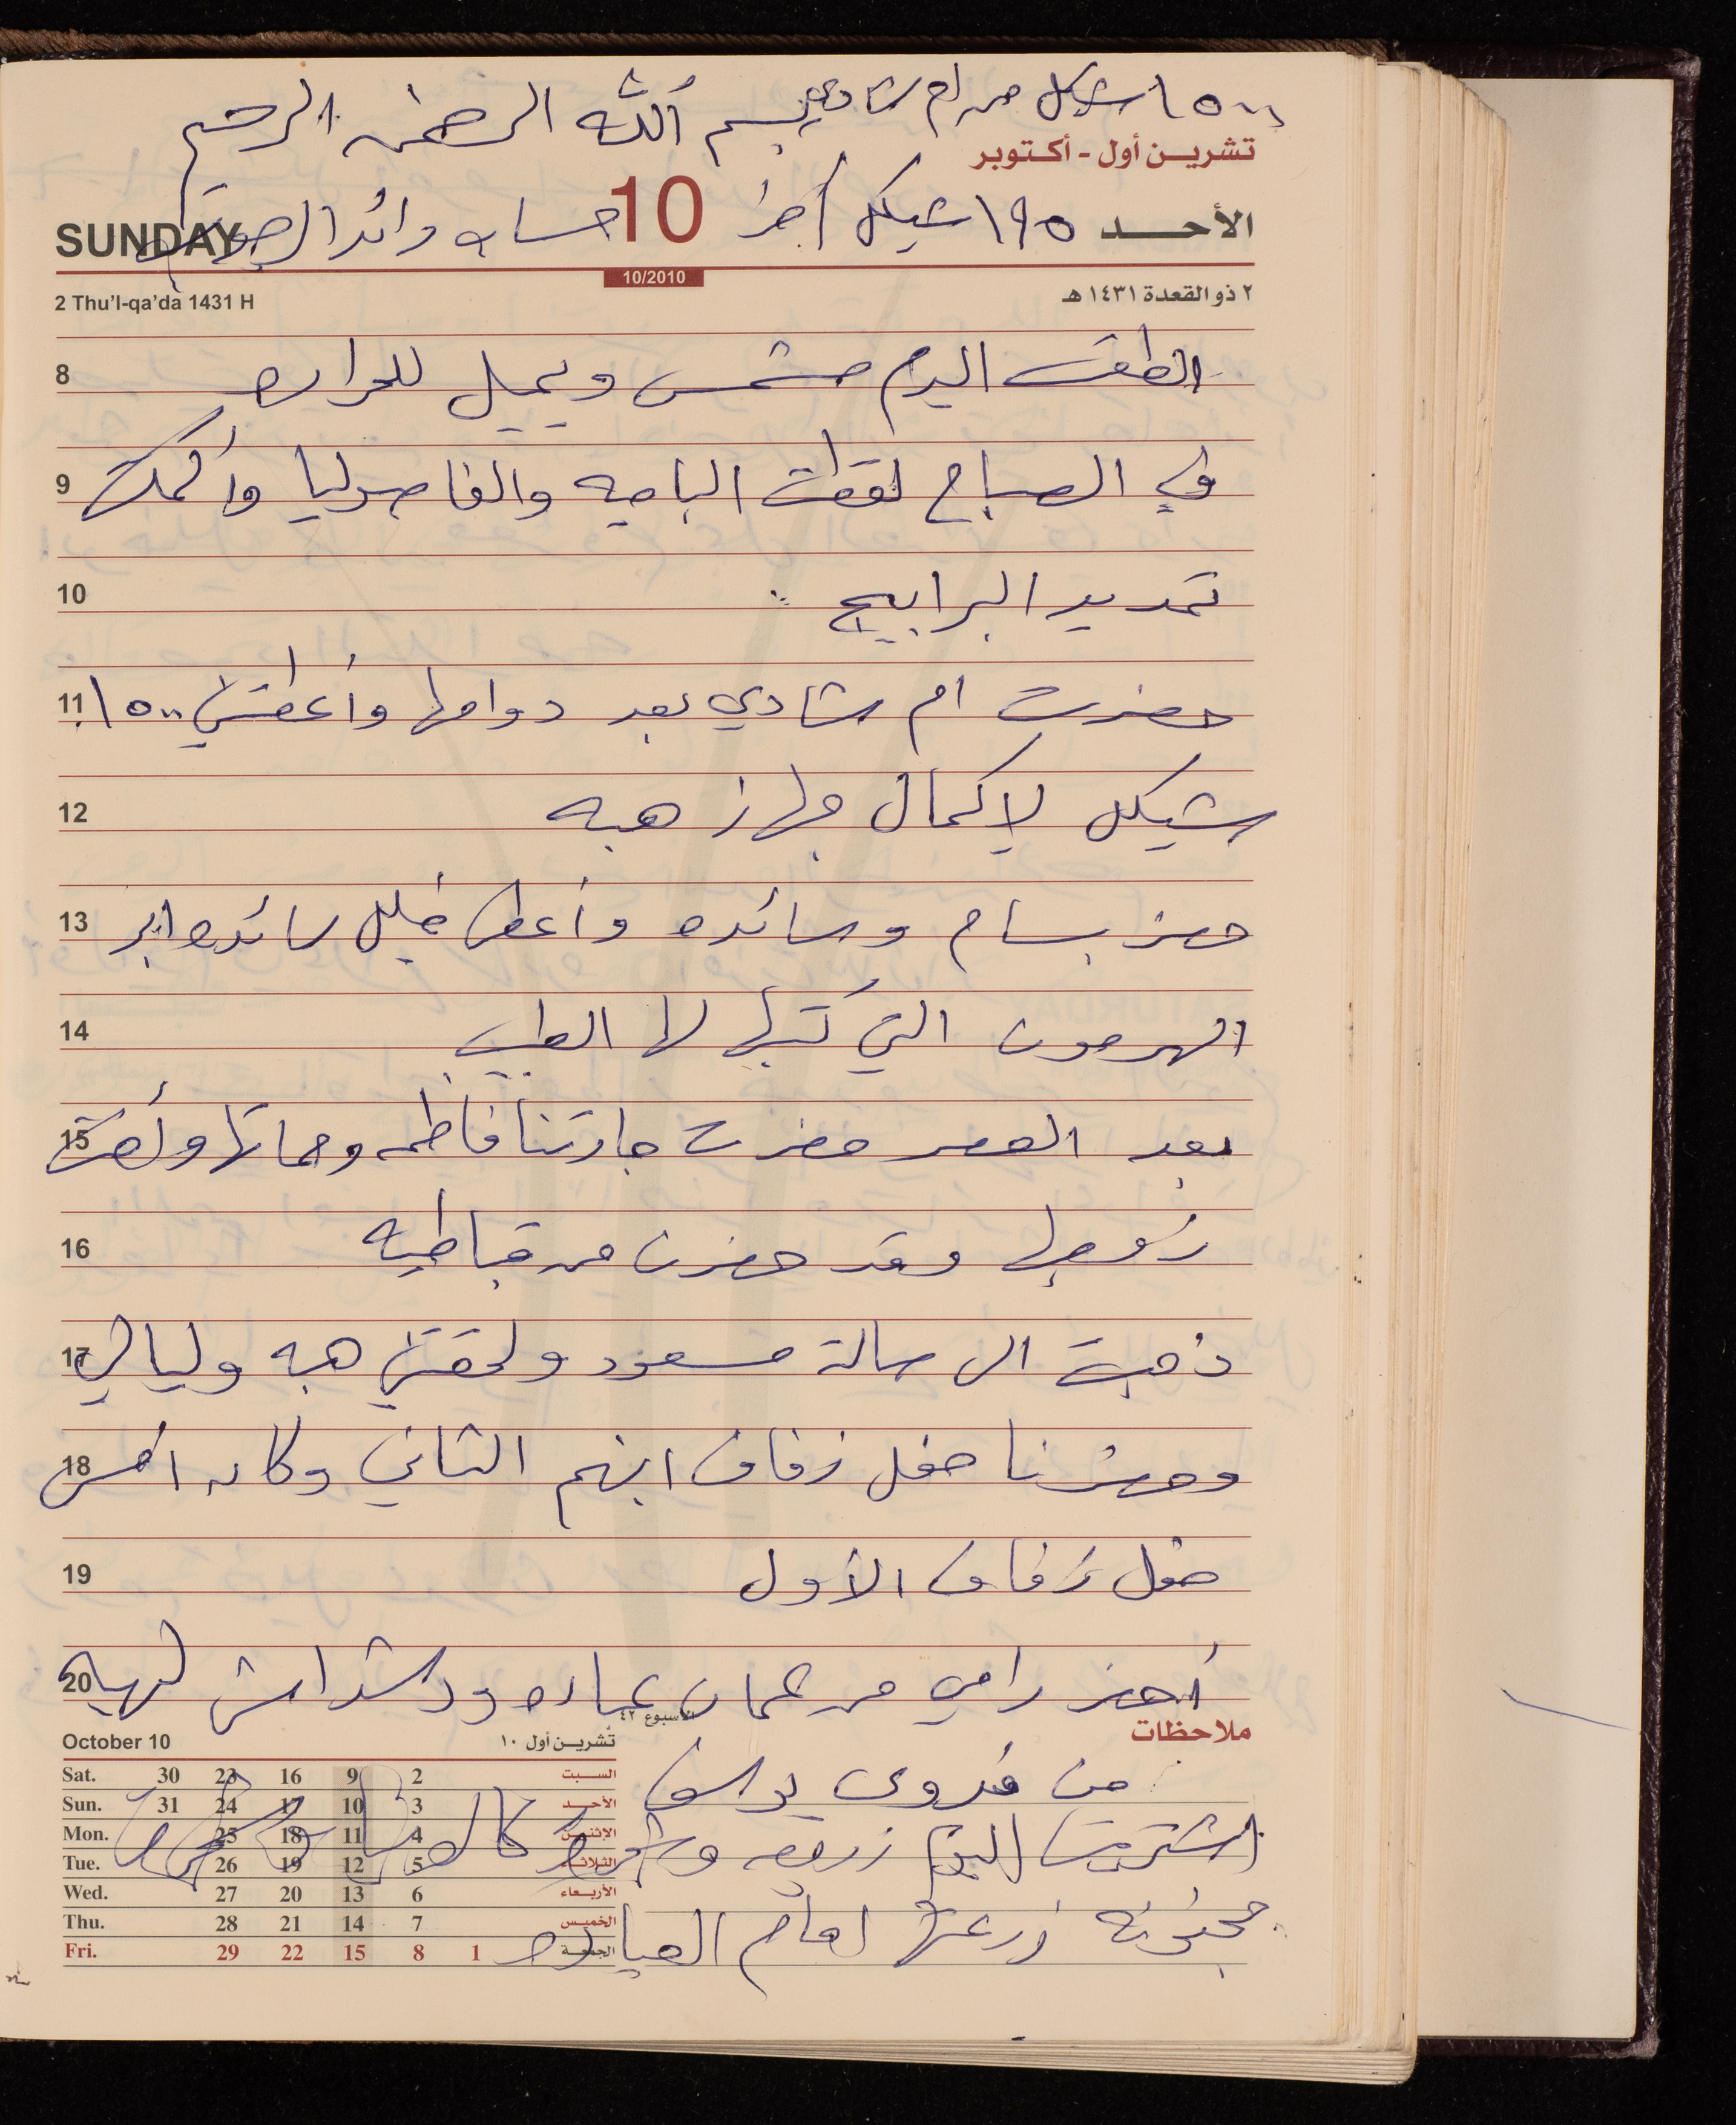 ١٥٠٠ شيكل من ام شادي بسم الله الرحمن الرحيم
تشرين أول - أكتوبر
SUNDAY 10 الأحد
١٩٥ شيكل آخر حساب رائد
10/2010
2 Thu'l-qa'da 1431 H ٢ ذو القعدة ١٤٣١ هـ
8 الطقس اليوم مشمس ويميل للحرارة
9 في الصباح لقطت الباميه والفاصوليا وأكملت
10 تمديد البرابيج
11 حضرت ام شادي بعد دوامها وأعطتني ١٥٠٠
12 شيكل لإكمال جهاز هبه
13 حضر بسام وسائده وأعطى خليل سائده ابر
14 الهرمون التي كتبها لها الطبيب
15 بعد العصر حضرت جارتنا فاطمه وحماتها وأخت
16 زوجها وقد حضرن من قباطيه
17 ذهبت الى صالة مسعود ولحقتني هبه وليالي
18 وحضرنا حفل زفاف ابنهم الثاني وكان امس
19 حفل زفاف الأول
20 أحضر رامي من عمان عباءه ودشداش لهبه
الأسبوع ٤٢
ملاحظات
من فدوى يوسف
اشتريت اليوم زريعه
مجنونه زرعتها امام العياده
October 10 تشرين أول ١٠
Sat. 30 23 16 9 2 السبت
Sun. 31 24 17 10 3 الأحد
Mon. 25 18 11 4 الإثنين
Tue. 26 19 12 5 الثلاثاء
Wed. 27 20 13 6 الأربعاء
Thu. 28 21 14 7 الخميس
Fri. 29 22 15 8 1 الجمعة